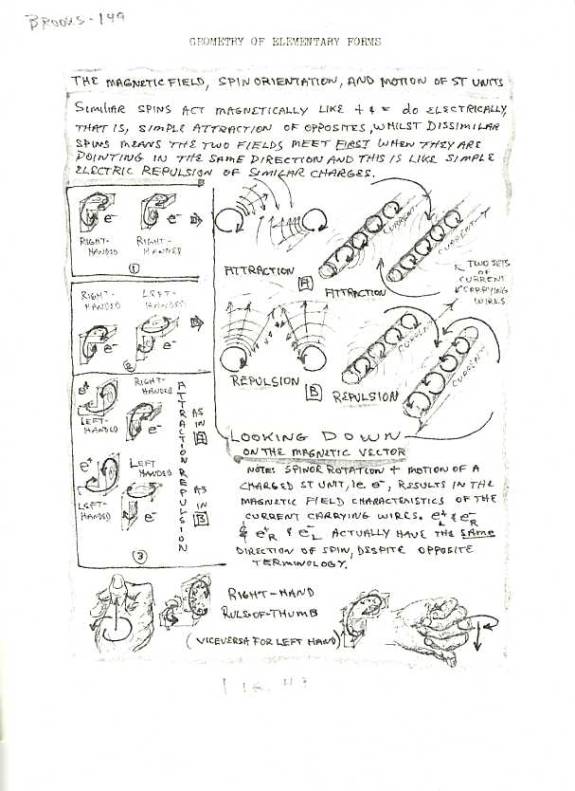 BROOKS-149
GEOMETRY OF ELEMENTARY FORMS
THE MAGNETIC FIELD, SPIN ORIENTATION, AND MOTION OF ST UNITS
SIMILIAR SPINS ACT MAGNETICALLY LIKE + & - do ELECTRICALLY,
THAT IS, SIMPLE ATTRACTION OF OPPOSITES, WHILST DISSIMILAR
SPINS MEANS THE TWO FIELDS MEET FIRST WHEN THEY ARE
POINTING IN THE SAME DIRECTION AND THIS IS LIKE SIMPLE
ELECTRIC REPULSION OF SIMILAR CHARGES.
e- e-
RIGHT-HANDED
RIGHT-HANDED
1
RIGHT-HANDED
LEFT-HANDED
e- e-
2
e+
LEFT-HANDED
RIGHT-HANDED
e-
e+
LEFT-HANDED
LEFT HANDED
e-
3
ATTRACTION
AS IN A
REPULSION
AS IN B
ATTRACTION A
ATTRACTION
CURRENT
CURRENT
TWO SETS
OF
CURRENT
CARRYING
WIRES
REPULSION B
REPULSION
CURRENT
CURRENT
LOOKING DOWN
ON THE MAGNETIC VECTOR
NOTE: SPINOR ROTATION + MOTION OF A
CHARGED ST UNIT, IE e-, RESULTS IN THE
MAGNETIC FIELD CHARACTERISTICS OF THE
CURRENT CARRYING WIRES. e+L & e-R
& e+R & e-L ACTUALLY HAVE THE SAME
DIRECTION OF SPIN, DESPITE OPPOSITE
TERMINOLOGY.
RIGHT-HAND
RULE-OF-THUMB
(VICEVERSA FOR LEFT HAND)